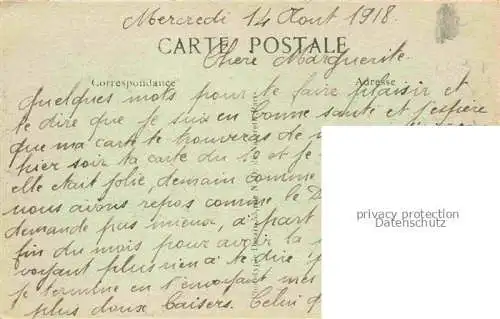 Mercredi 14 Aout 1918.
CARTE POSTALE
Chere Marguerite.
Correspondance
Adresse
quelques mots pour te faire plaisir et
te dire que je suis en bonne santé et j'espère
que ma carte te trouveras de
hier soir ta carte du 10 et je
elle était jolie, demain comme
nous avons repos comme le D
demande pas mieux, à part
fin du mois pour avoir la
voyant plus rien à te dire
je termine en t'envoyant mes
plus doux Baisers. Celui
privacy protection
Datenschutz